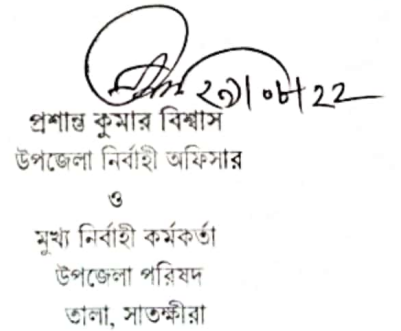 ২৯/০৮/২২
প্রশান্ত কুমার বিশ্বাস
উপজেলা নির্বাহী অফিসার
ও
মুখ্য নির্বাহী কর্মকর্তা
উপজেলা পরিষদ
তালা, সাতক্ষীরা